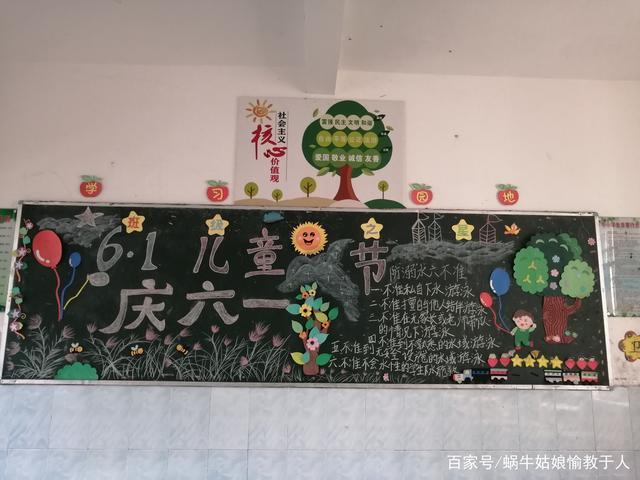 社会主义
核心
价值观
富强 民主 文明 和谐
自由 平等 公正 法治
爱国 敬业 诚信 友善
学习园地
班级之星
6.1儿童节
庆六一
防溺水六不准
一不准私自下水游泳
二不准擅自与他人结伴游泳
三不准在无家长或老师带队
的情况下游泳
四不准到不熟悉的水域游泳
五不准到无安全设施的水域游泳
六不准不会水性的学生
百家号/蜗牛姑娘愉教于人